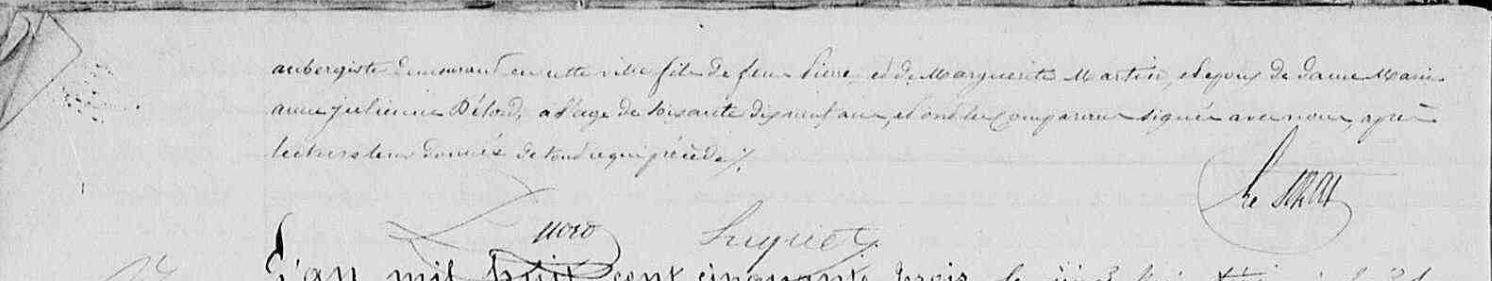 aubergiste demeurant en cette ville fils de feu Pierre, et de Marguerite Martin, et époux de dame Marie
anne Julienne Délord, a l'age de soixante dix neuf ans, et ont les Comparans signés avec nous, après
lecture leur donnée de tout ce qui précède /.
Luguet
L'an mil huit cent cinquante trois le